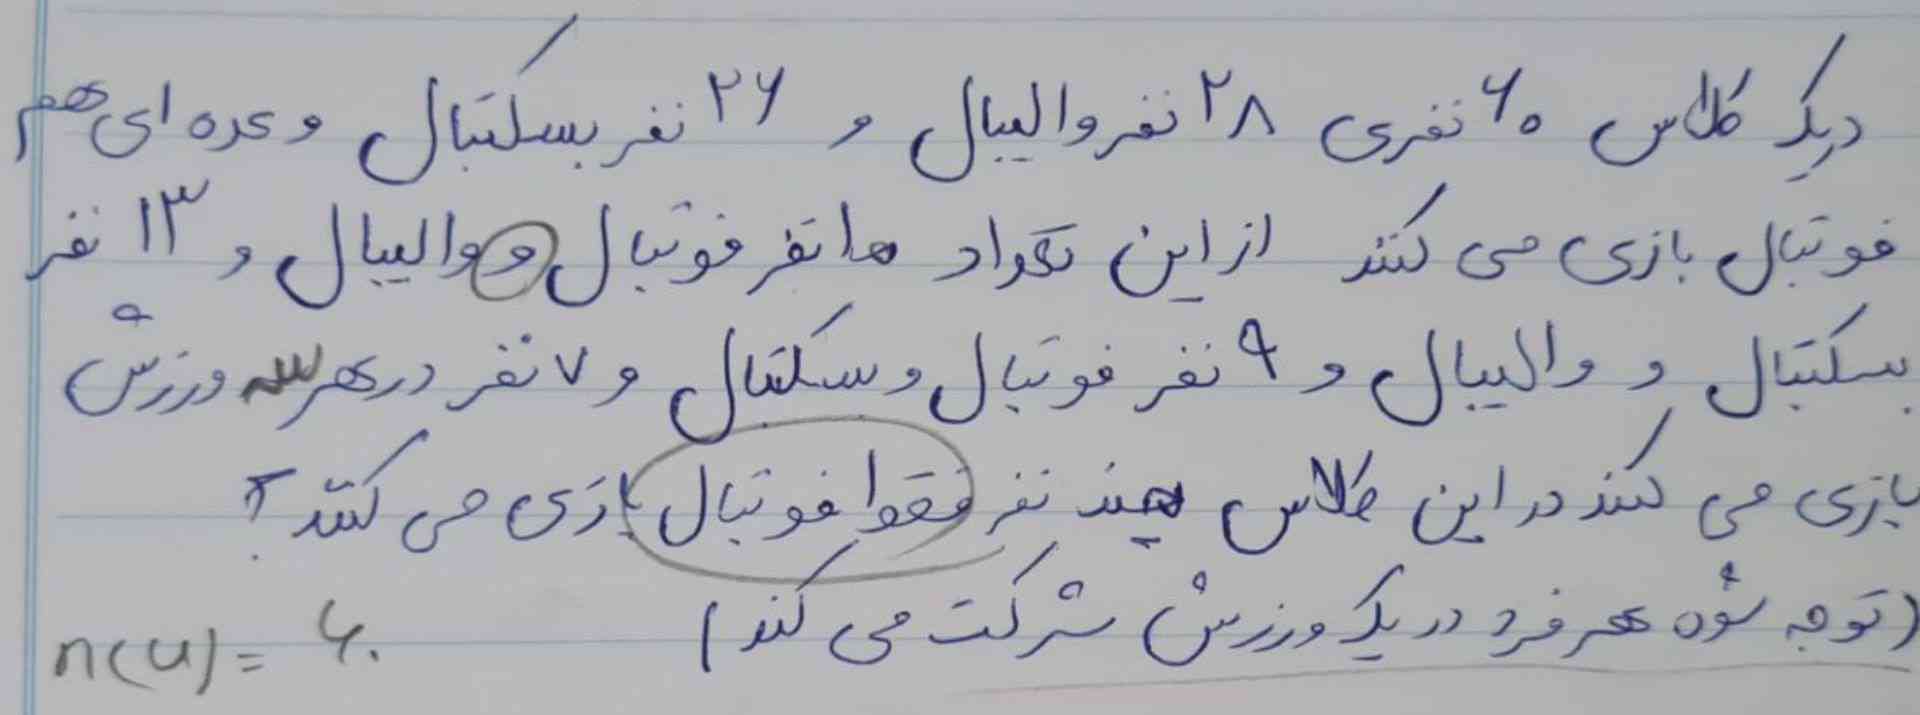 دریک کلاس ۶۰ نفری ۲۸ نفر والیبال و ۲۶ نفر بسکتبال و عده ای هم
فوتبال بازی می کنند از این تعداد ۱۵ نفر فوتبال و والیبال و ۱۳ نفر
بسکتبال و والیبال و ۹ نفر فوتبال و بسکتبال و ۷ نفر در هر سه ورزش
بازی می کنند در این کلاس چند نفر فقط فوتبال بازی می کنند؟
(توجه شود هر فرد در یک ورزش شرکت می کند)
n(u) = ۶۰